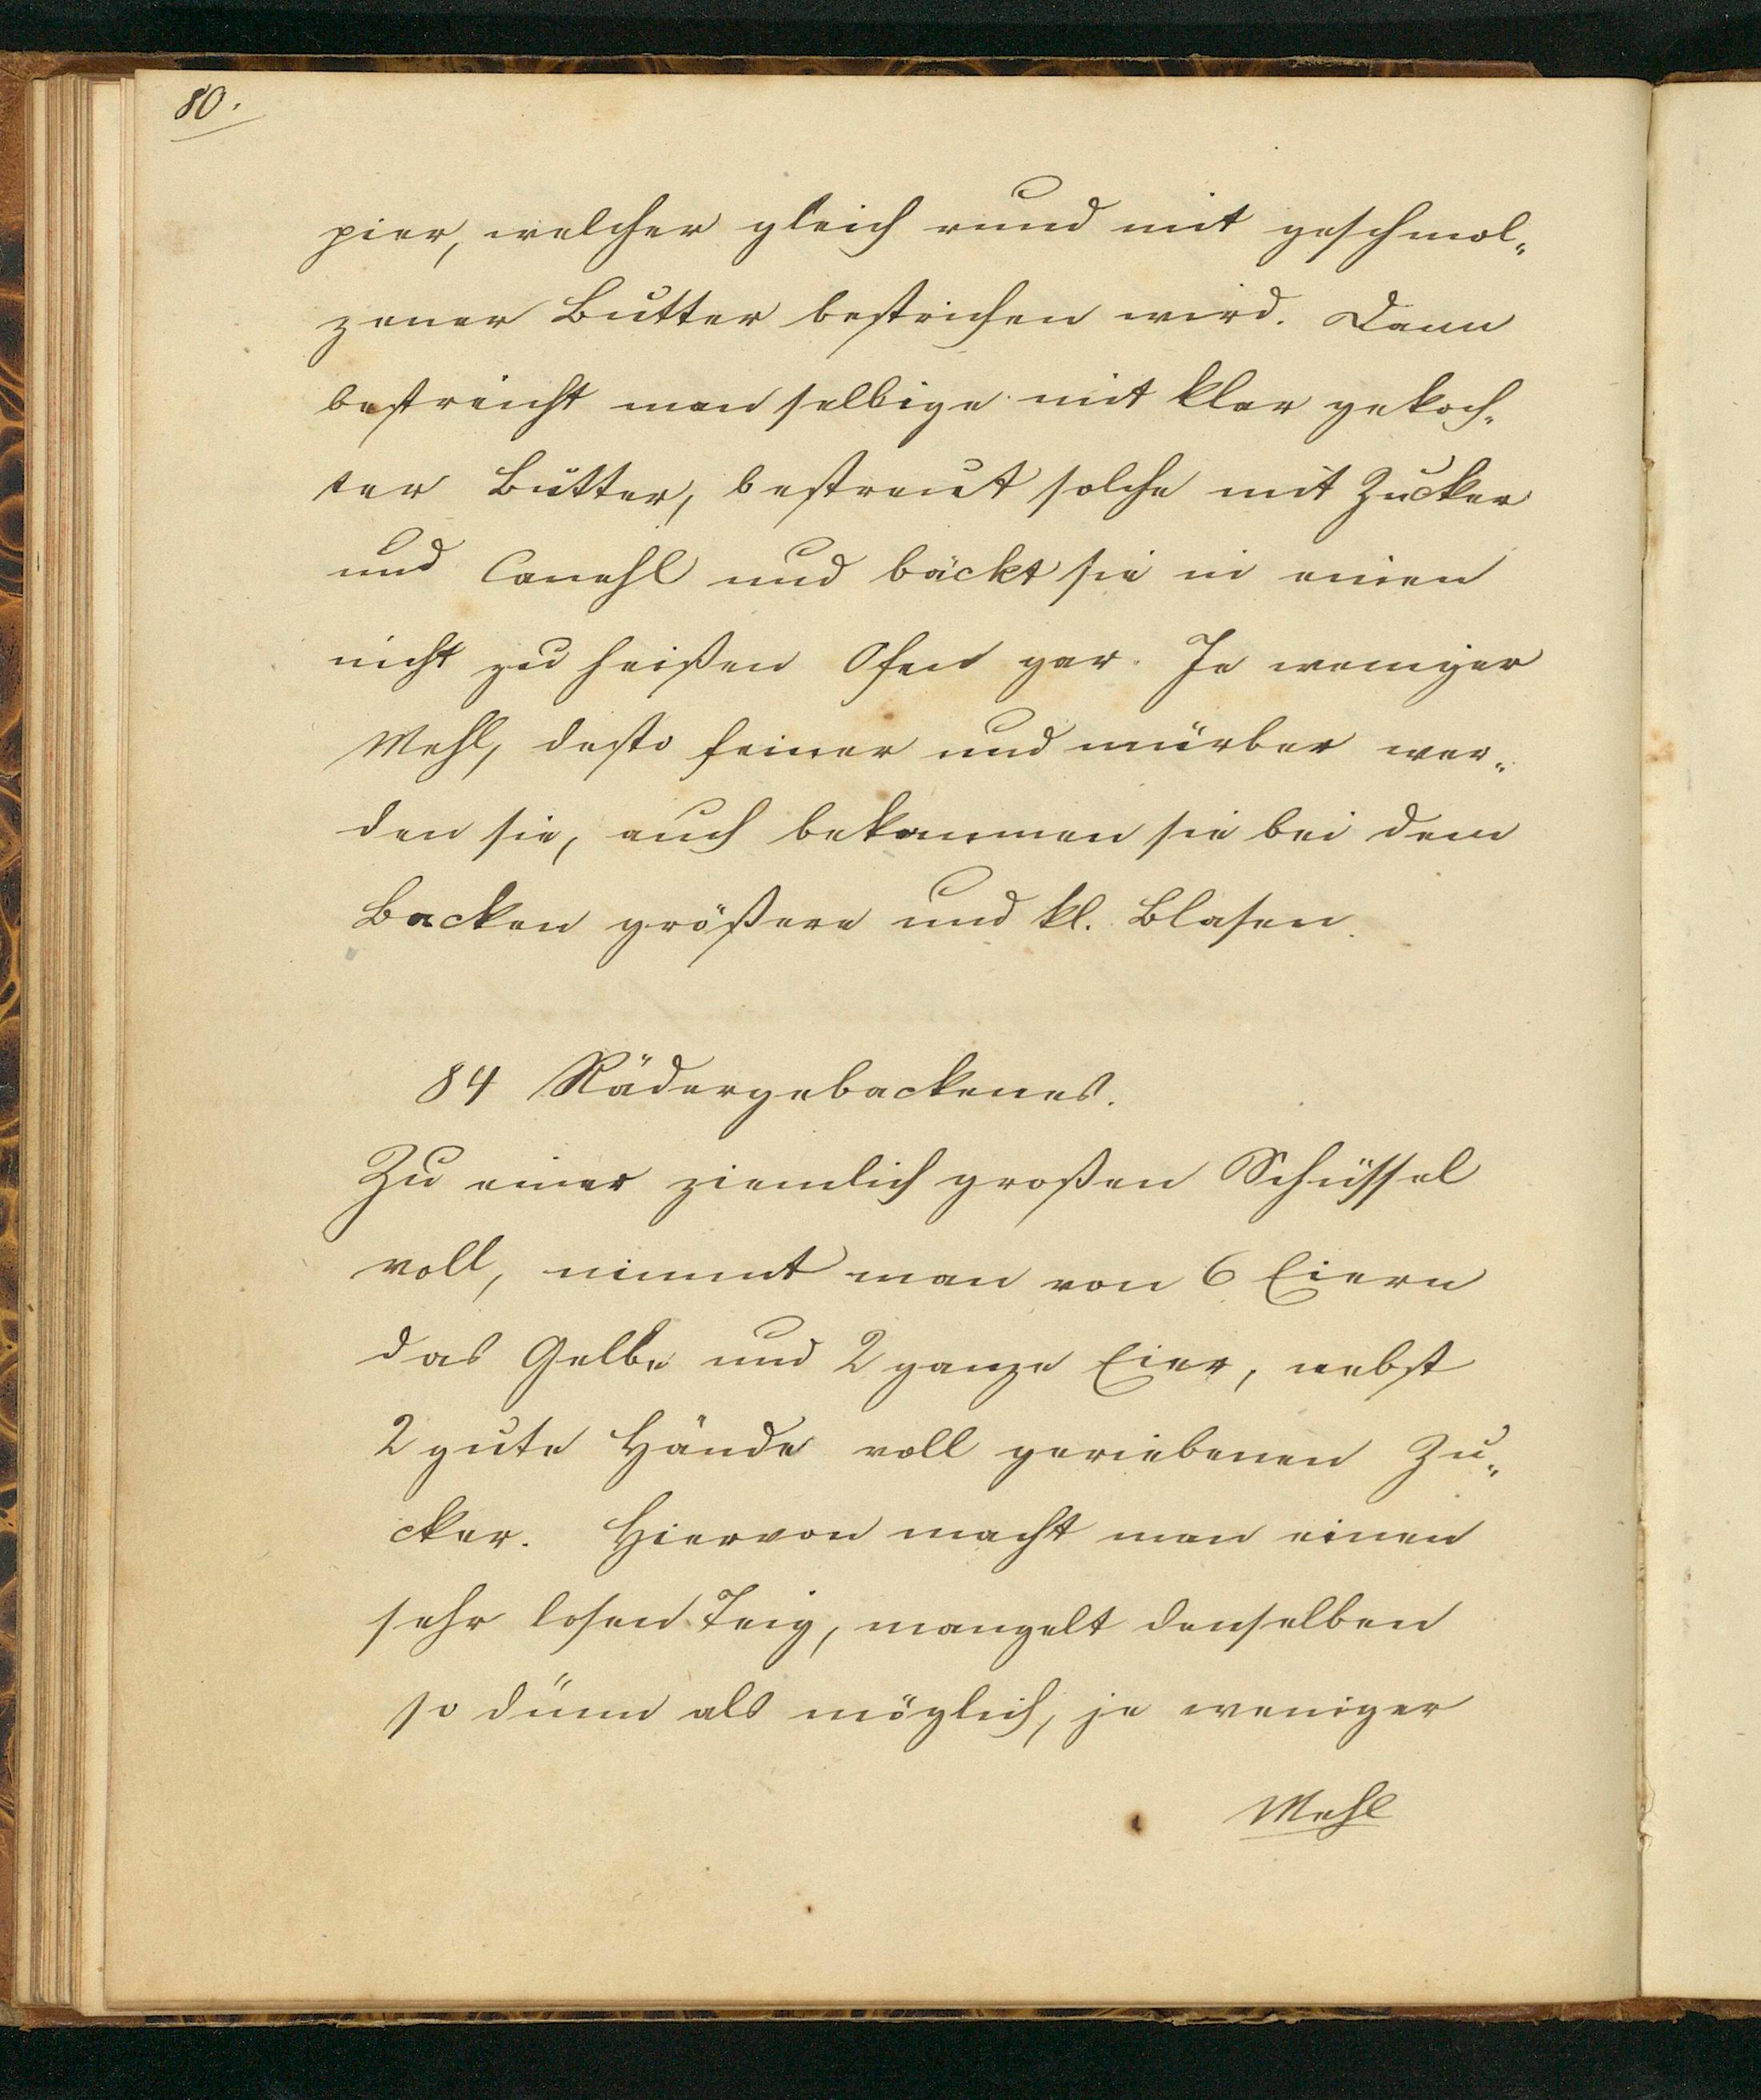 80.
pier, welcher gleich rund mit geschmol„
zener Butter bestrichen wird. Dann
bestreicht man selbige mit klar gekoch„
ter Butter, bestreut solche mit Zucker
und Canehl und bäckt sie in einen
nicht zu heißen Ofen gar. Je weniger
Mehl, desto feiner und mürber wer„
den sie, auch bekommen sie bei dem
Backen größere und kl. Blasen.
84 Rädergebackenes.
Zu einer ziemlich großen Schüssel
voll, nimmt man von 6 Eiern
das Gelbe und 2 ganze Eier, nebst
2 gute Hände voll geriebenen Zu„
cker. Hiervon macht man einen
sehr losen Teig, mangelt denselben
so dünn als möglich, je weniger
Mehl